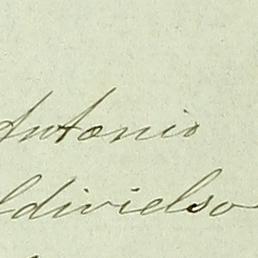 Antonio
ldivielso